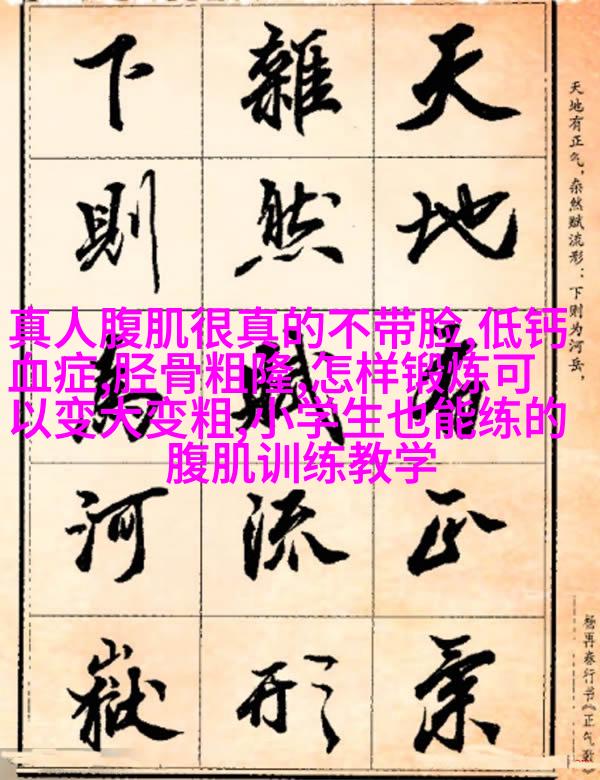 真人腹肌很真的不带脸,低钙
血症,胫骨粗隆,怎样锻炼可
以变大变粗,小学生也能练的
腹肌训练教学
天地有正气，杂然赋流形：下则为河岳，
天地有正氣
雜然賦流形
下則為河嶽
杨再春行书《正气歌》